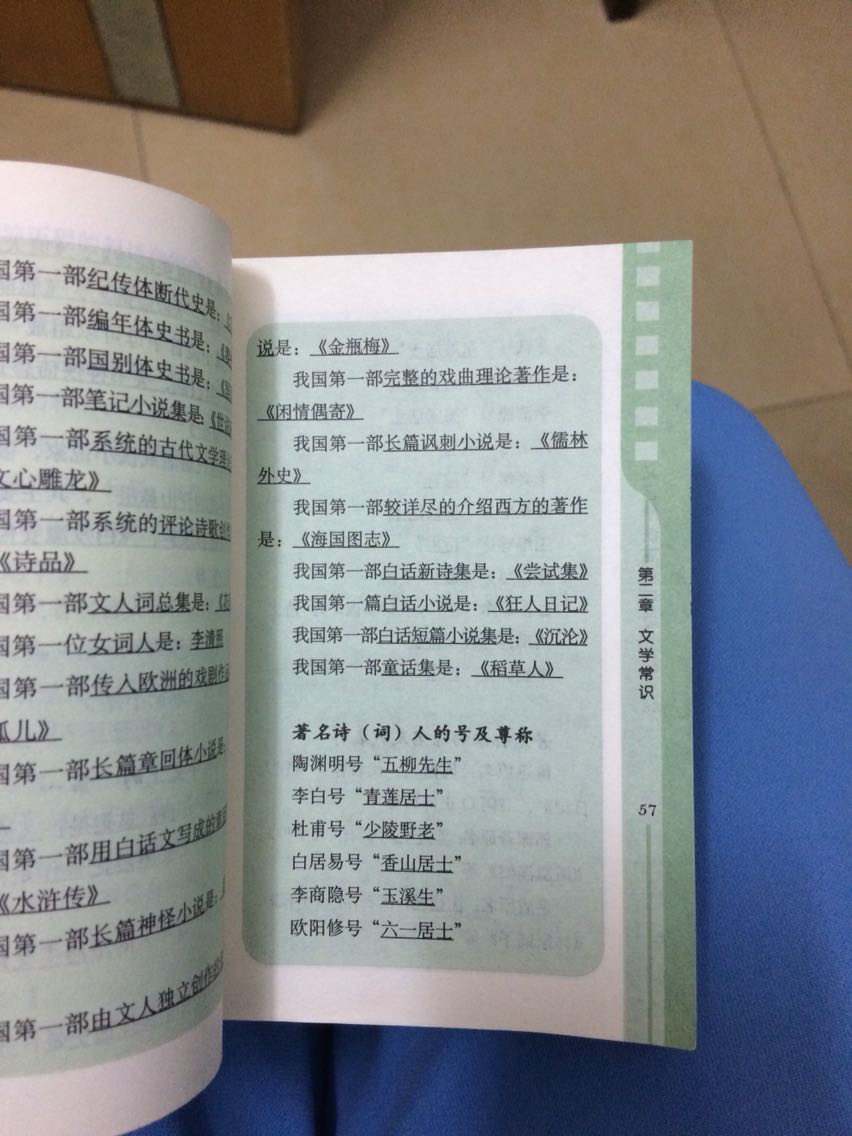 国第一部纪传体断代史是：
国第一部编年体史书是：
国第一部国别体史书是：
国第一部笔记小说集是：《世说
国第一部系统的古代文学理
文心雕龙》
国第一部系统的评论诗歌创作
《诗品》
国第一部文人词总集是：《花
国第一位女词人是：李清照
国第一部传入欧洲的戏剧作品
孤儿》
国第一部长篇章回体小说是：
国第一部用白话文写成的章回
《水浒传》
国第一部长篇神怪小说是：
国第一部由文人独立创作的
说是：《金瓶梅》
我国第一部完整的戏曲理论著作是：
《闲情偶寄》
我国第一部长篇讽刺小说是：《儒林
外史》
我国第一部较详尽的介绍西方的著作
是：《海国图志》
我国第一部白话新诗集是：《尝试集》
我国第一篇白话小说是：《狂人日记》
我国第一部白话短篇小说集是：《沉沦》
我国第一部童话集是：《稻草人》
著名诗（词）人的号及尊称
陶渊明号“五柳先生”
李白号“青莲居士”
杜甫号“少陵野老”
白居易号“香山居士”
李商隐号“玉溪生”
欧阳修号“六一居士”
第二章 文学常识
57